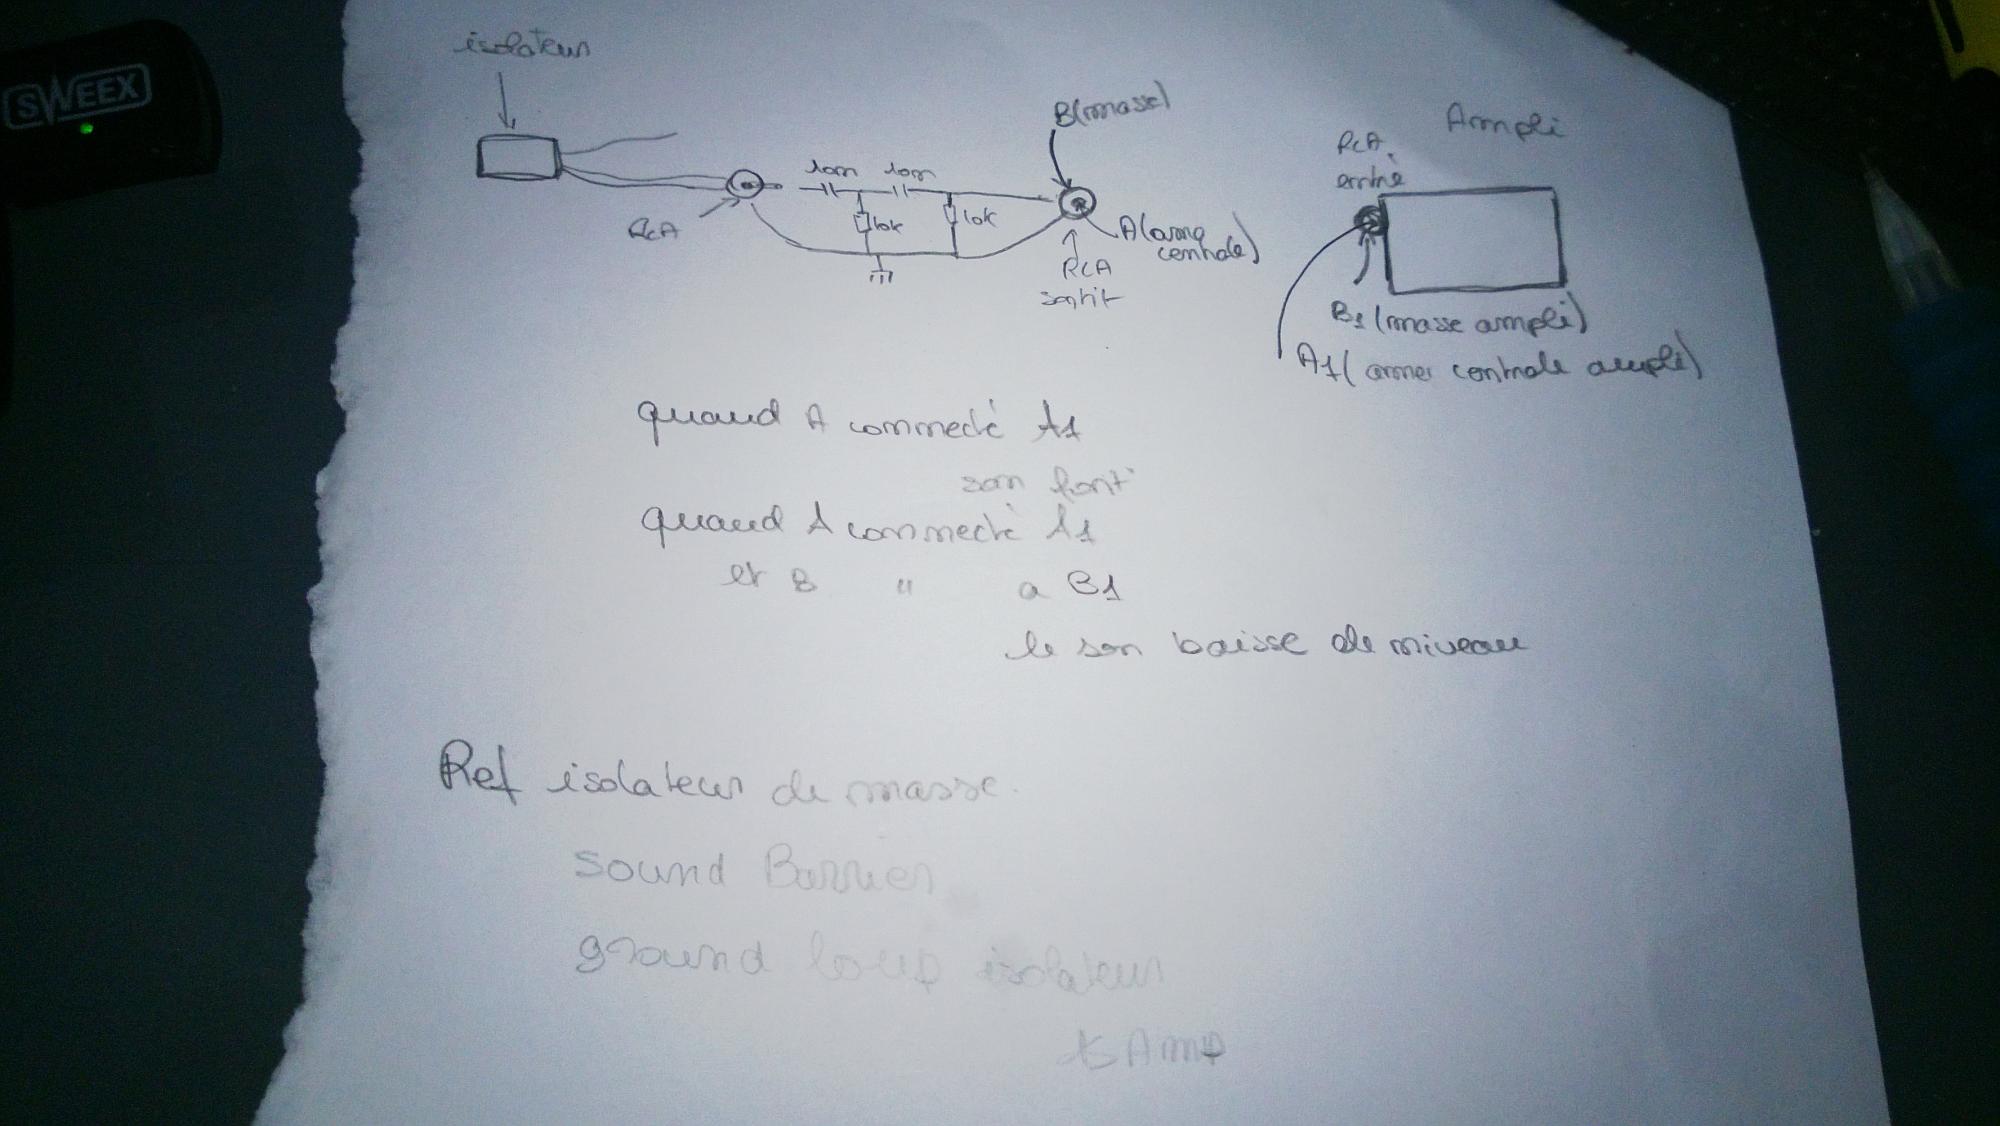 SWEEX
isolateur
RCA
10n 10n
10k
10k
B(masse)
A(ame
centrale)
RCA
sortie
Ampli
RCA
entré
B1 (masse ampli)
A1( ame centrale ampli)
quand A connecté A1
son fort
quand A connecté A1
et B " a B1
le son baisse de niveau
Ref isolateur de masse.
sound Barrier
ground loup isolateur
Amp